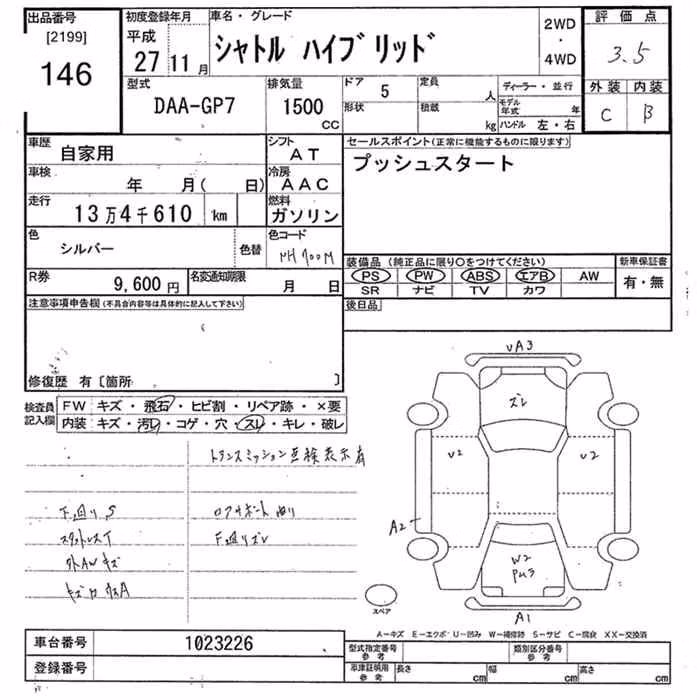 出品番号
[2199]
146
初度登録年月
平成
27 11月
車名・グレード
シャトル ハイブリッド
2WD
・
4WD
評価点
3.5
外装 内装
C B
型式
DAA-GP7
排気量
1500
CC
ドア 5
形状
定員 人
積載 kg
ディーラー・並行
モデル年式 年
ハンドル 左・右
車歴
自家用
シフト
AT
車検
年 月( 日)
冷房
AAC
走行
13万4千610 km
燃料
ガソリン
色
シルバー
色替
色コード
NH700M
R券
9,600円
名変通知期限
月 日
セールスポイント(正常に機能するものに限ります)
プッシュスタート
装備品(純正品に限り○をつけてください)
PS PW ABS エアB AW
SR ナビ TV カワ
新車保証書
有・無
後日品
注意事項申告欄(不具合内容等は具体的に記入して下さい)
修復歴 有〔箇所 〕
検査員記入欄
FW キズ・飛石・ヒビ割・リペア跡・×要
内装 キズ・汚レ・コゲ・穴・スレ・キレ・破レ
トランスミッション点検表示有
下廻りS
スタットレスT
外AWキズ
F廻りズレ
UA3
ズレ
U2
U2
A2
W2
A1
スペア
A-キズ E-エクボ U-凹み W-補修跡 S-サビ C-腐食 XX-交換済
車台番号 1023226
登録番号
型式指定番号 参考
類別区分番号 参考
車庫証明用 参考
長さ cm
幅 cm
高さ cm